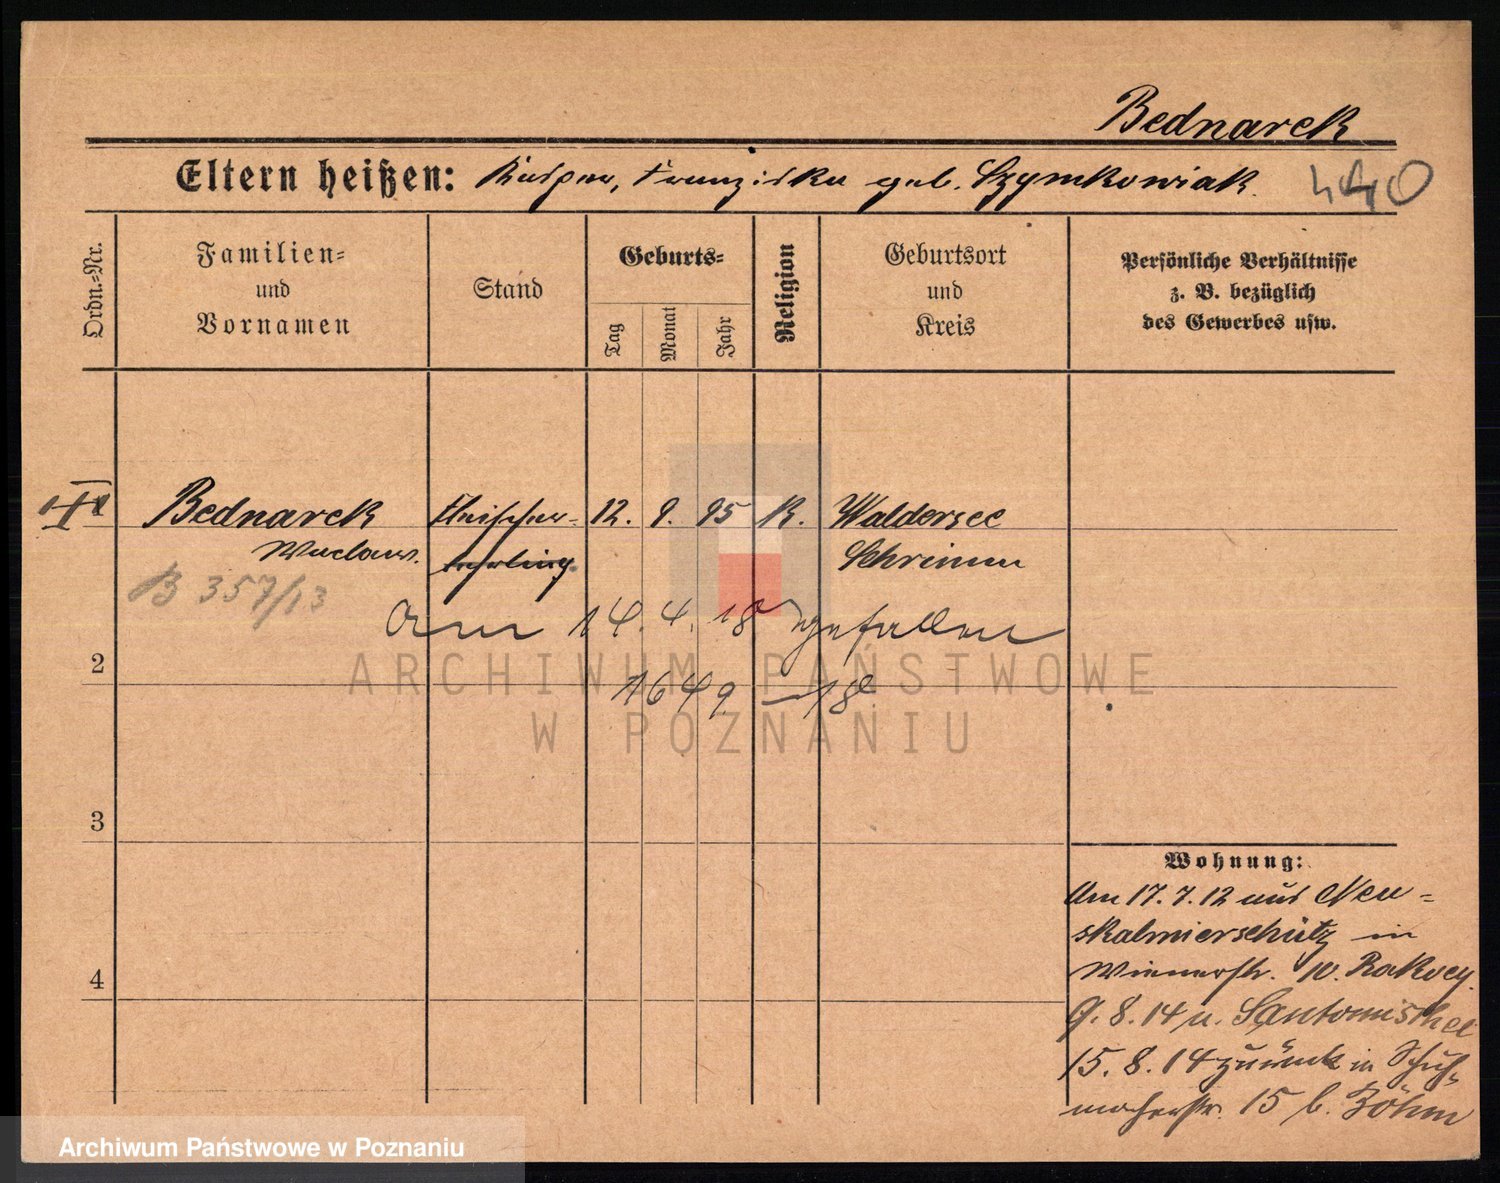 Bednarek
Eltern heißen: Kaspar, Franziska geb. Szymkowiak.
440
Ordn.-Nr.
Familien-
und
Vornamen
Stand
Geburts-
Tag
Monat
Jahr
Religion
Geburtsort
und
Kreis
Persönliche Verhältnisse
z. B. bezüglich
des Gewerbes usw.
Bednarek Fleischer- 12. 9. 95 K. Waldersee
Waclaw. lehrling. Schrimm
B 357/13
Am 14. 4. 18 gefallen
2
1649 - 18
ARCHIWUM PAŃSTWOWE
W POZNANIU
3
4
Wohnung:
Am 17. 7. 12 aus Neu-
skalmierschütz in
Wienerstr. 10.
9. 8. 14 n. Santomischel
15. 8. 14 zurück in Schuh-
macherstr. 15 b. Böhm
Archiwum Państwowe w Poznaniu